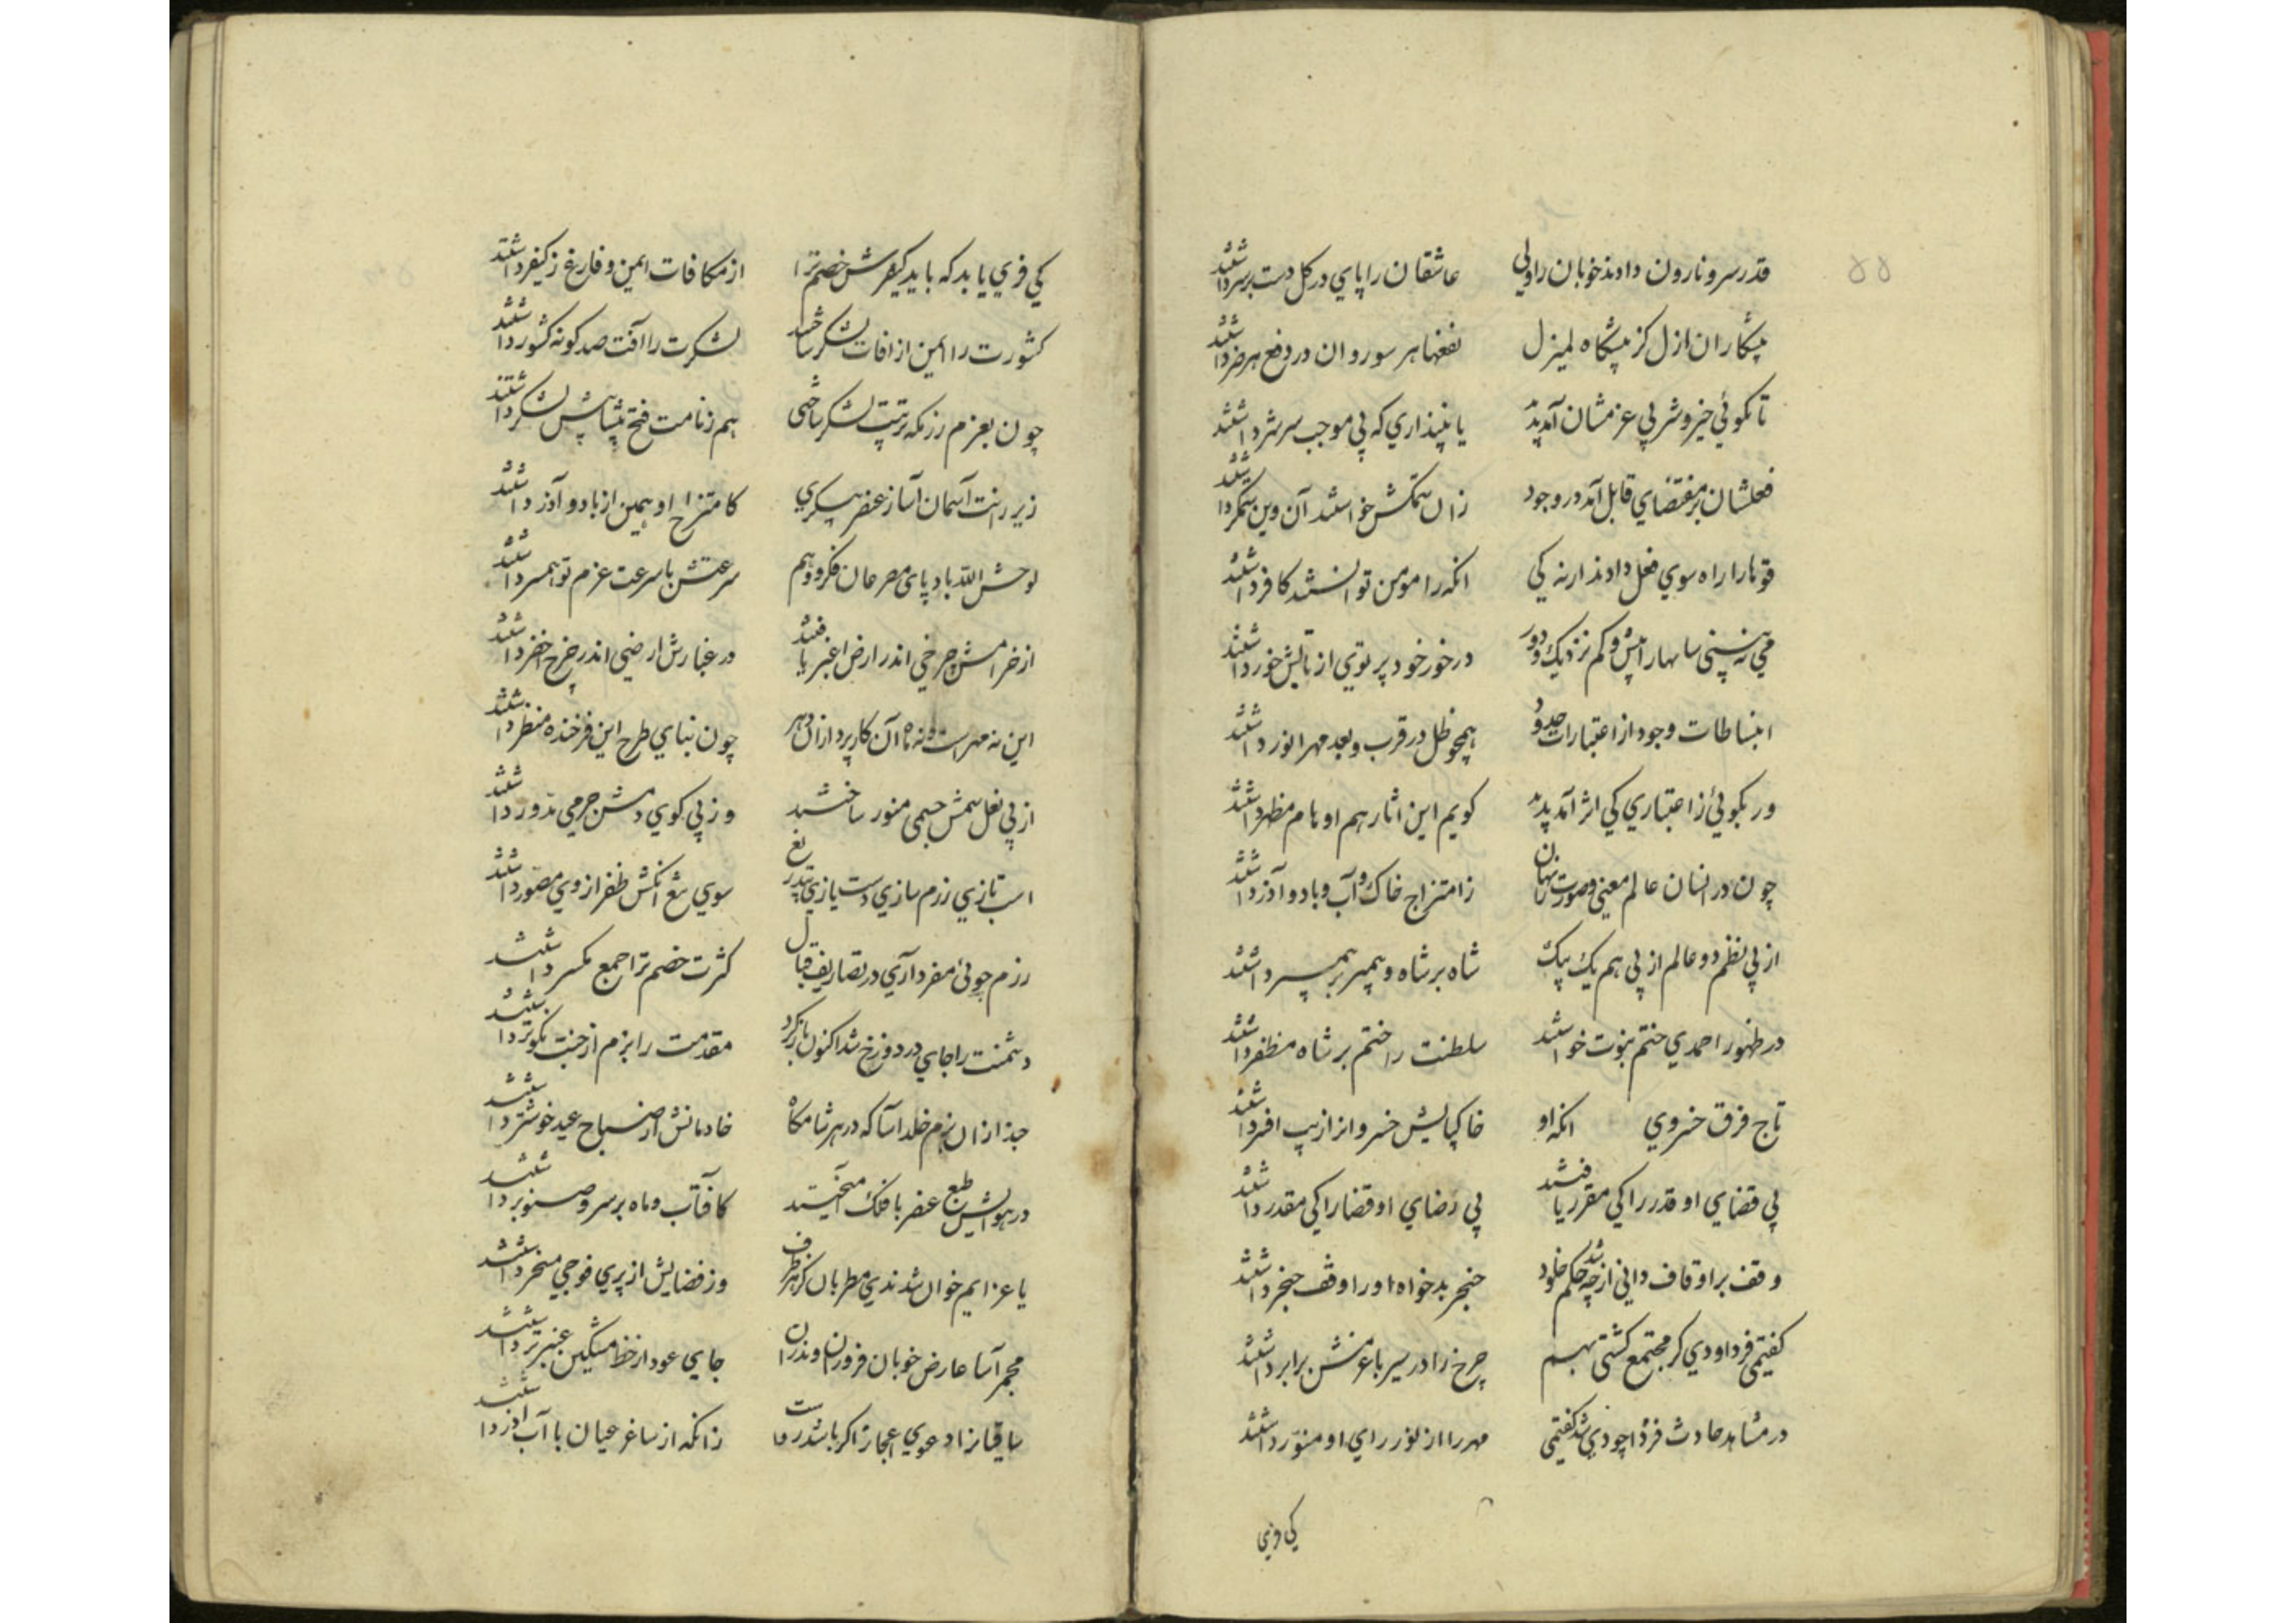 ۵۵
قدر سرو نارون دادند خوبان را ولی عاشقان را پای در گل دست بر سر داشتند
پیشکاران ازل کز پیشگاه لم یزل نفعها هر سو روان در دفع هر ضر داشتند
تا نگوئی خیر و شر بی عزمشان آمد پدید یا نپنداری که بی موجب سر شر داشتند
فعلشان بر مقتضای قابل آمد در وجود زان ستمکش خواستند آن وین ستمگر داشتند
قوتها را راه سوی فعل دادند ار نه کی انکه را مومن توانستند کافر داشتند
می نه بینی سایها را بیش و کم نزدیک و دور در خور خود پرتوی از تابش خور داشتند
انبساطات وجود از اعتبارات حدود همچو ظل در قرب و بعد مهر انور داشتند
ور بگوئی ز اعتباری کی اثر آمد پدید گویم این اثار هم او نام مظهر داشتند
چون در انسان عالم معنی و صورت نهان ز امتزاج خاک و آب و باد و آذر داشتند
از پی نظم دو عالم از پی هم یک بیک شاه بر شاه و پیمبر بر پیمبر داشتند
در ظهور احمدی ختم نبوت خواستند سلطنت را ختم بر شاه مظفر داشتند
تاج فرق خسروی انکه او خاکپایش خسروان را زیب افسر داشتند
بی قضای او قدر را کی مقرر یافتند بی رضای او قضا را کی مقدر داشتند
وقف بر اوقاف دانی از چه شد حکم خلود خنجر بدخواه او را وقف حنجر داشتند
گفتمی فرد او دی گر مجتمع گشتی بهم چرخ را در سیر با عزمش برابر داشتند
در مشابه حادث فردا چو دی شد گفتمی مهر را از نور رای او منور داشتند
کی فری
کی فری یابد که باید کیفرش خصم ترا از مکافات ایمن و فارغ ز کیفر داشتند
کشورت را ایمن از افات لشکر ساختند لشکرت را آفت صد گونه کشور داشتند
چون بعزم رزمگه ترتیب لشکر ساختی هم ز نامت فتح پیشاپیش لشکر داشتند
زیر رانت آسمان آسا ز عنصر پیکری کامتزاج او همین از باد و آذر داشتند
لوحش الله باد پای مصر عان فکر و وهم سرعتش با سرعت عزم تو همسر داشتند
از خرامش چرخی اندر ارض اغبر یافتند در غبارش ارضی اندر چرخ اخضر داشتند
این نه مهر است و نه ماه آن کارپردازان دهر چون بنای طرح این فرخنده منظر داشتند
از پی نعل سمش جسمی منور ساختند وز پی گوی دمش جرمی مدور داشتند
اسب تازی رزم سازی دست یازی تیغ سوی تیغ انکش ظفر از وی مصور داشتند
رزم جوئی مفرد آری در تصاریف قتال کثرت خصم ترا جمع مکسر داشتند
دشمنت را جای در دوزخ شد اکنون باز گرد مقدمت را بزم از جنت نکوتر داشتند
حبذا زان بزم خلد اسا که در هر شامگاه خادمانش از صباح عید خوشتر داشتند
در هوایش طبع عنصر با فلک آمیختند کافتاب و ماه بر سرو و صنوبر داشتند
یا عزایم خوان شدندی مطربان کز هر طرف وز فضایش از پری فوجی مسخر داشتند
مجمر آسا عارض خوبان فروزان و ندران جای عود از خط مشکین عنبر تر داشتند
ساقیانرا دعوی اعجاز اگر باشد رواست زانکه از ساغر عیان با آب اذر داشتند